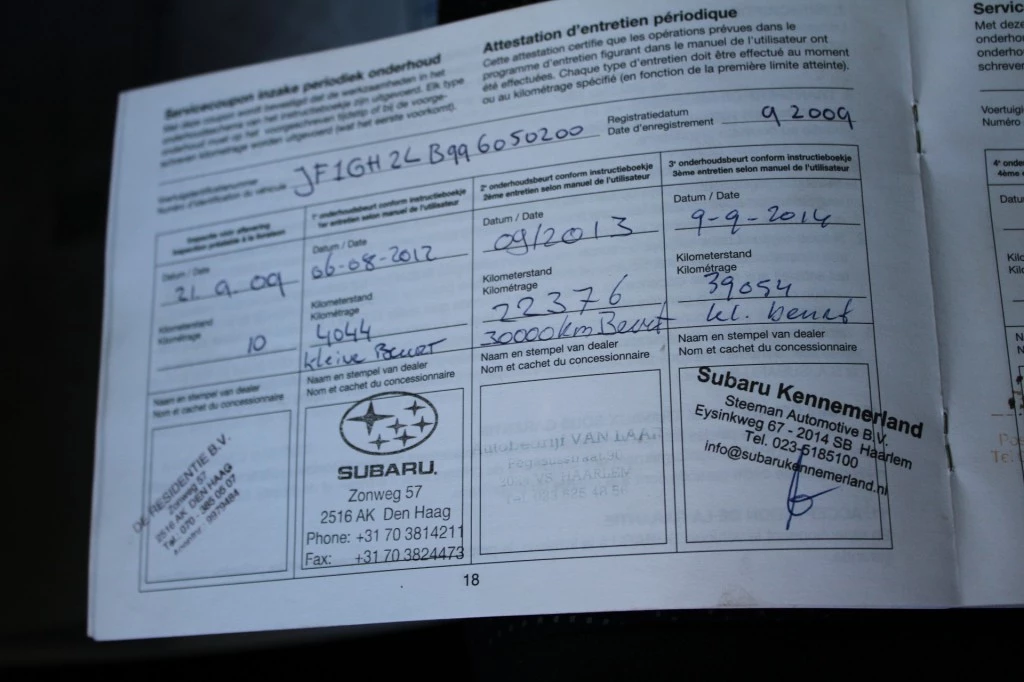 Servicecoupon inzake periodiek onderhoud
Attestation d'entretien périodique
Cette attestation certifie que les opérations prévues dans le
programme d'entretien figurant dans le manuel de l'utilisateur ont
été effectuées. Chaque type d'entretien doit être effectué au moment
ou au kilométrage spécifié (en fonction de la première limite atteinte).
Numéro d'identification du véhicule
JF1GH2LB996050200
Registratiedatum
Date d'enregistrement
9 2009
Inspectie vóór aflevering
Inspection préalable à la livraison
Datum / Date
21 9 09
Kilometerstand
Kilométrage
10
Naam en stempel van dealer
Nom et cachet du concessionnaire
DE RESIDENTIE B.V.
Zonweg 57
2516 AK DEN HAAG
Tel. 070 - 385 05 07
1e onderhoudsbeurt conform instructieboekje
1er entretien selon manuel de l'utilisateur
Datum / Date
06-08-2012
Kilometerstand
Kilométrage
4044
kleine Beurt
Naam en stempel van dealer
Nom et cachet du concessionnaire
SUBARU.
Zonweg 57
2516 AK Den Haag
Phone: +31 70 3814211
Fax: +31 70 3824473
2e onderhoudsbeurt conform instructieboekje
2ème entretien selon manuel de l'utilisateur
Datum / Date
09/2013
Kilometerstand
Kilométrage
22376
30000km Beurt
Naam en stempel van dealer
Nom et cachet du concessionnaire
Autobedrijf VAN LAAR
HAARLEM
3e onderhoudsbeurt conform instructieboekje
3ème entretien selon manuel de l'utilisateur
Datum / Date
9-9-2014
Kilometerstand
Kilométrage
39054
kl. beurt
Naam en stempel van dealer
Nom et cachet du concessionnaire
Subaru Kennemerland
Steeman Automotive B.V.
Eysinkweg 67 - 2014 SB Haarlem
Tel. 023-5185100
info@subarukennemerland.nl
18
Servic
Met deze
onderho
onderho
schreve
Voertuigi
Numéro
4e onder
4ème en
Datu
Kilo
Kilo
N
N